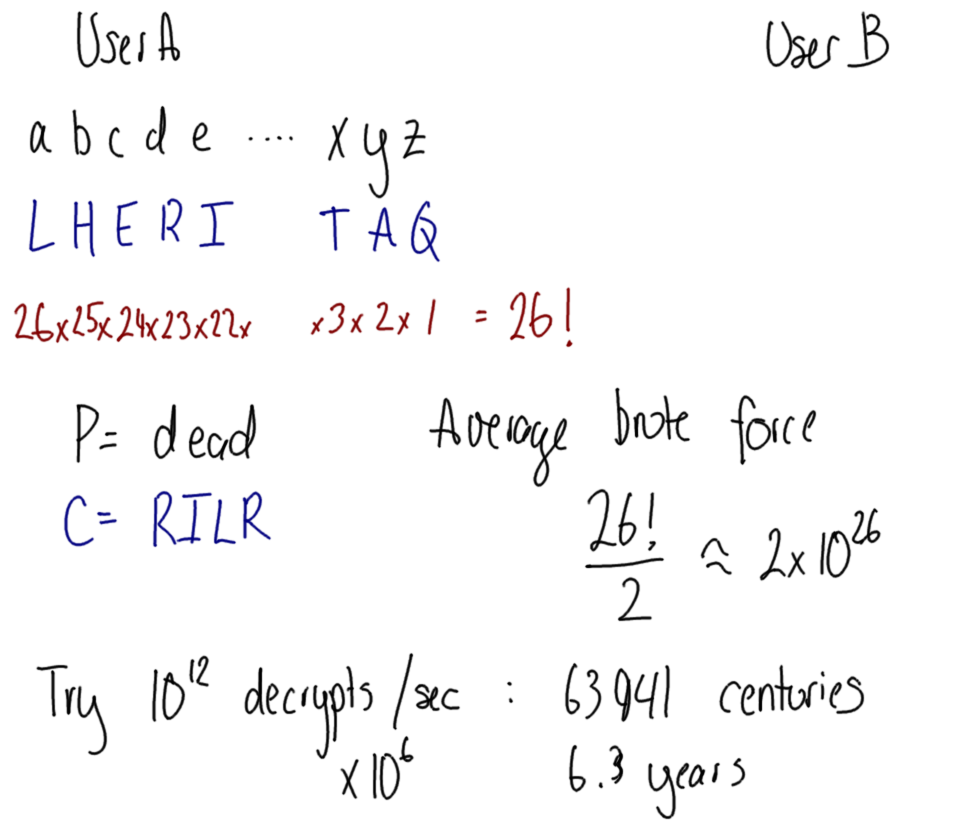 User A User B
a b c d e .... x y z
L H E R I T A Q
26x25x24x23x22x x3x2x1 = 26!
P= dead Average brute force
C= RILR 26!/2 ≈ 2x10^26
Try 10^12 decrypts/sec : 63941 centuries
x10^6 6.3 years